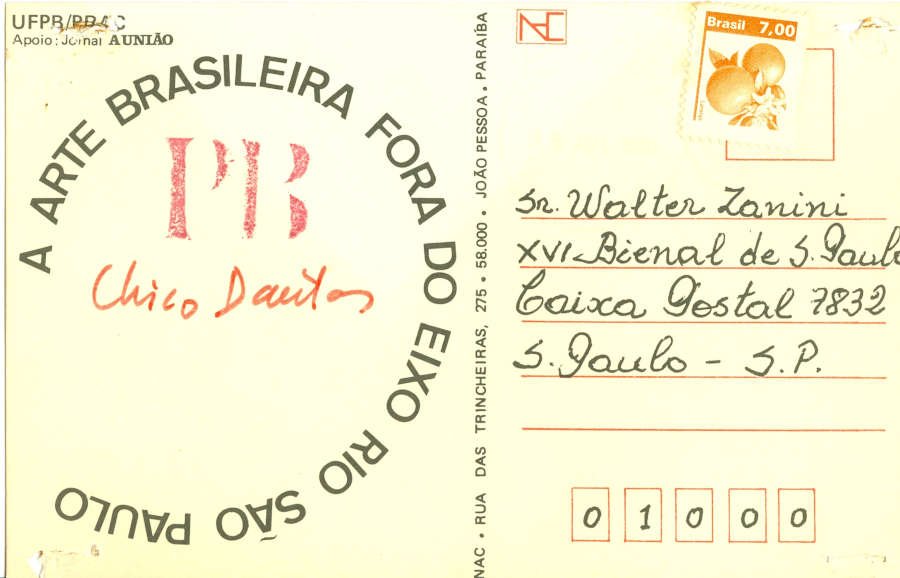 UFPB/PRAC
Apoio: Jornal A UNIÃO
A ARTE BRASILEIRA FORA DO EIXO RIO SÃO PAULO
PB
Chico Dantas
NAC • RUA DAS TRINCHEIRAS, 275 • 58.000 • JOÃO PESSOA. PARAÍBA
NAC
Brasil 7,00
Sr. Walter Zanini
XVI-Bienal de S. Paulo
Caixa Postal 7832
S. Paulo - S.P.
0 1 0 0 0